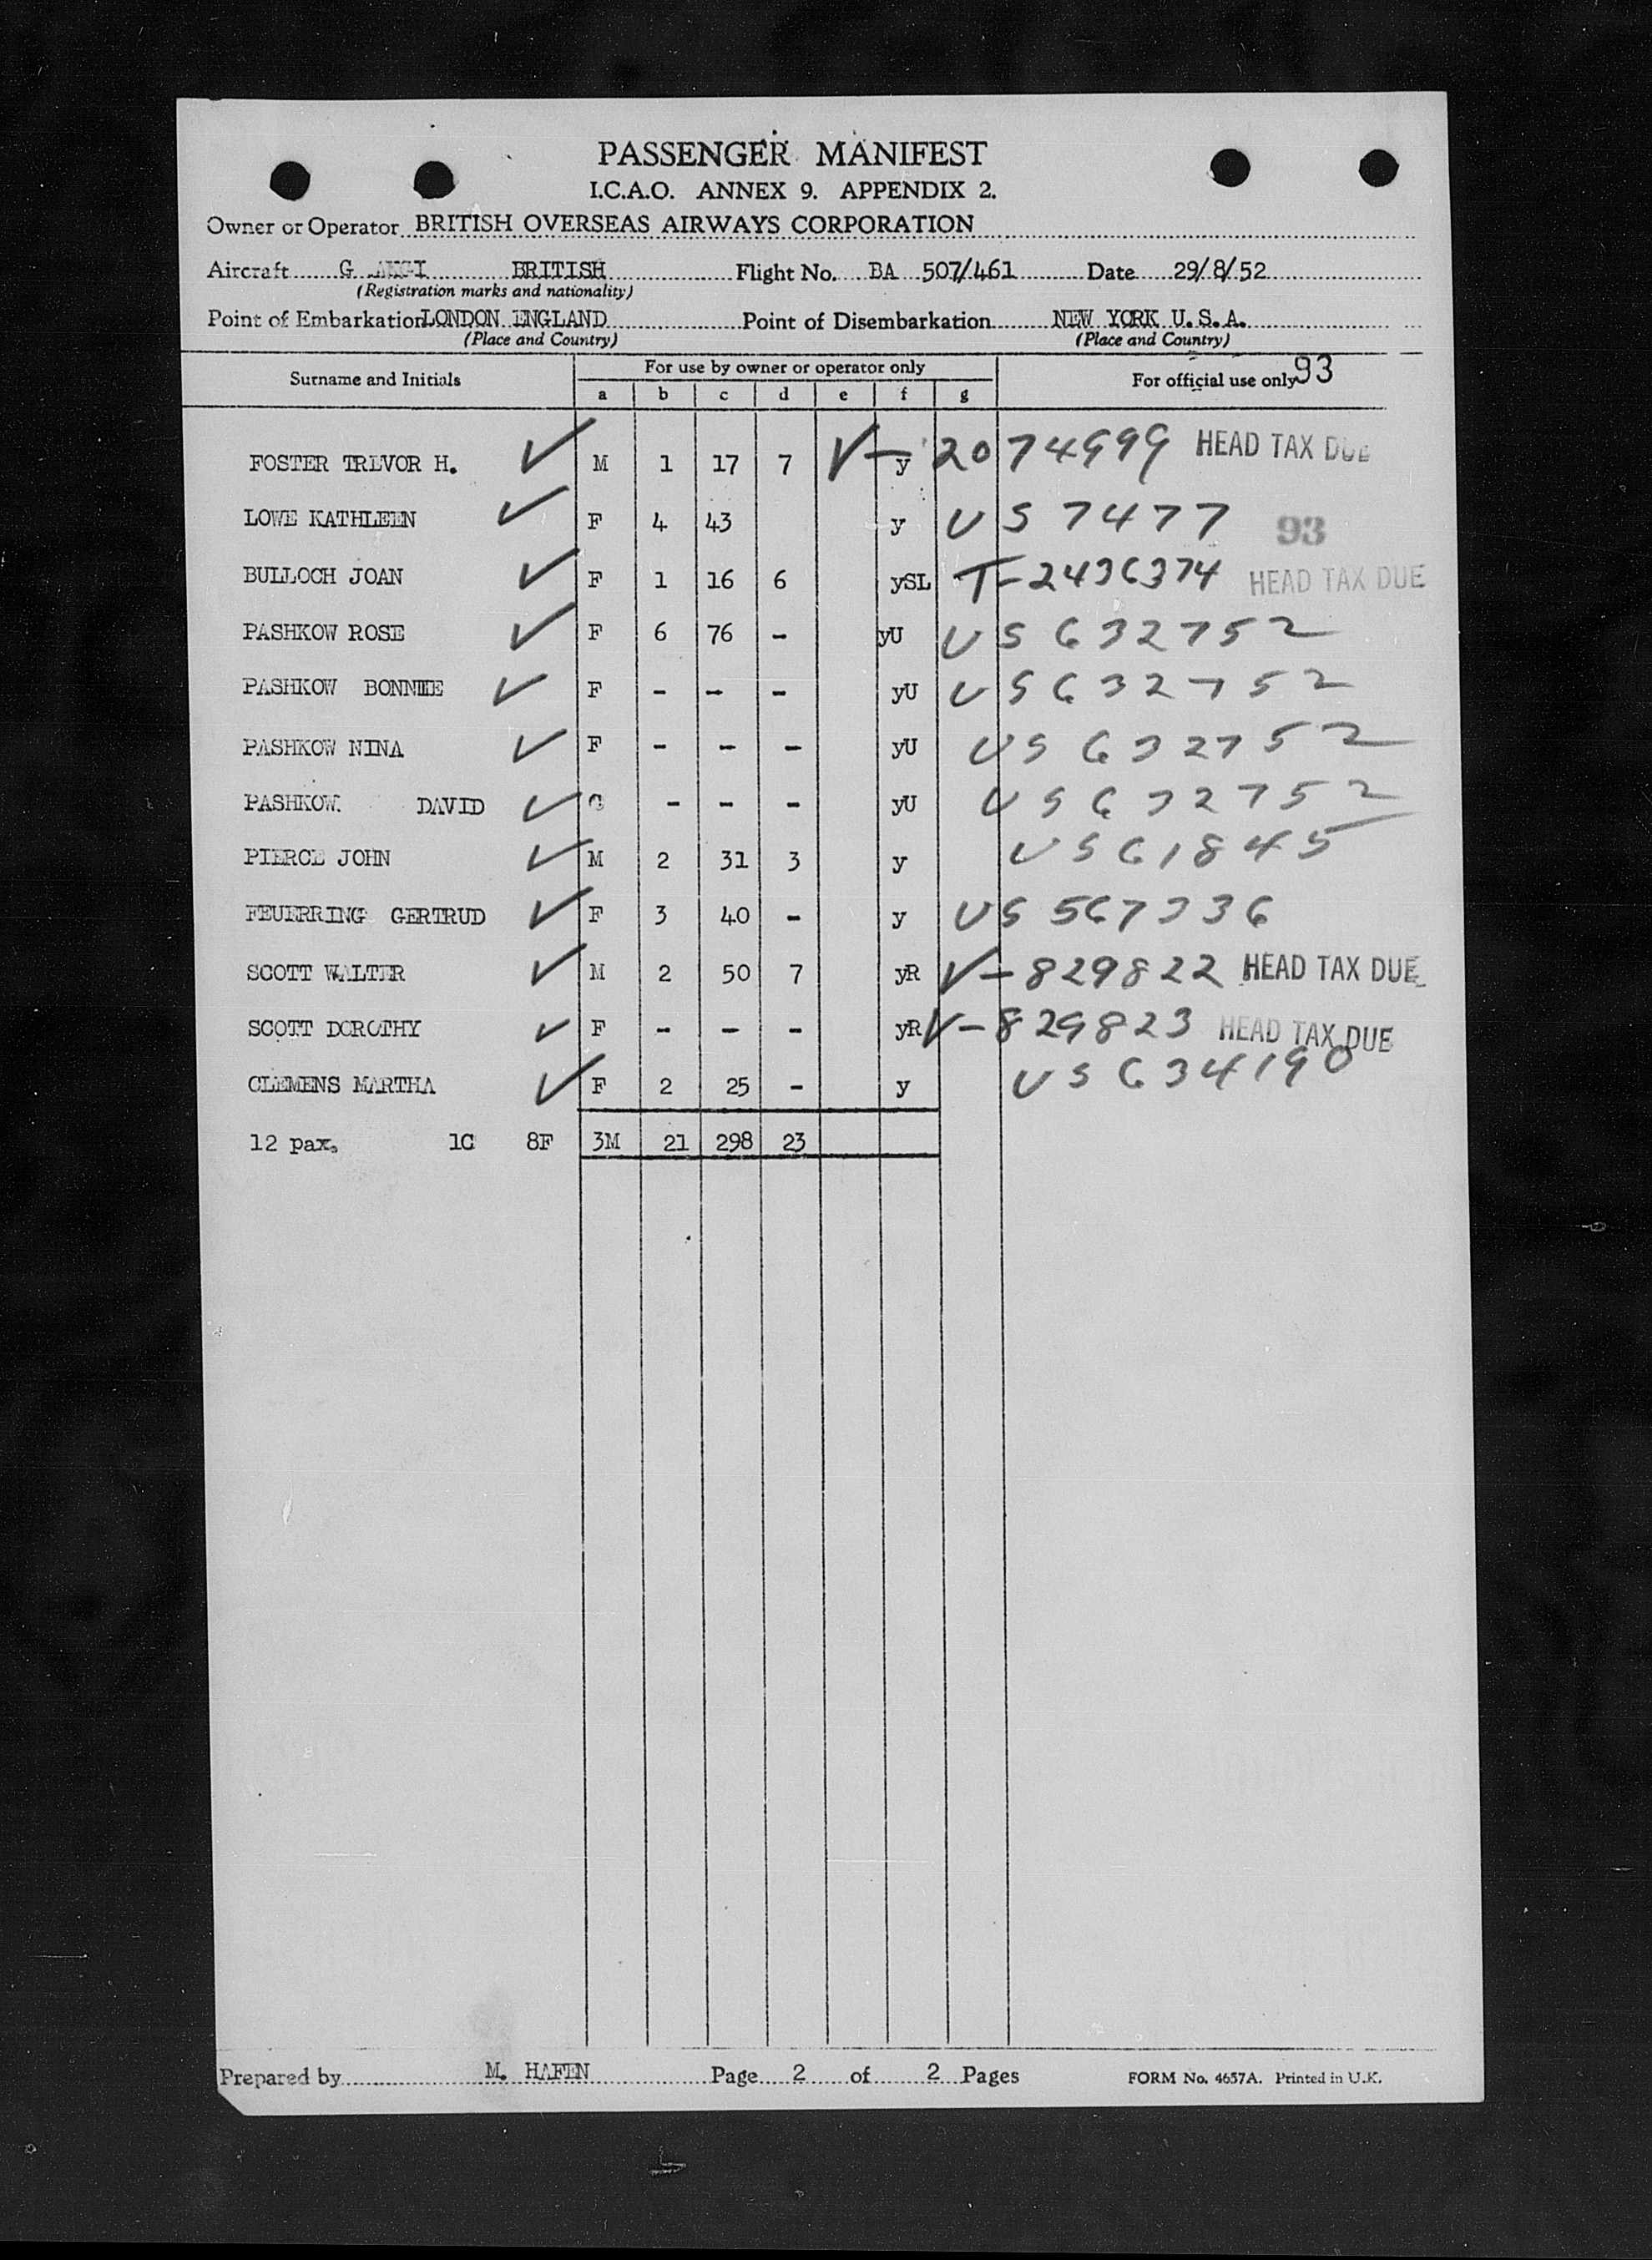 PASSENGER MANIFEST
I.C.A.O. ANNEX 9. APPENDIX 2.
Owner or Operator BRITISH OVERSEAS AIRWAYS CORPORATION
Aircraft G BRITISH Flight No. BA 507/461 Date 29/8/52
(Registration marks and nationality)
Point of Embarkation LONDON ENGLAND Point of Disembarkation NEW YORK U.S.A.
(Place and Country) (Place and Country)
Surname and Initials For use by owner or operator only For official use only 93
a b c d e f g
FOSTER TREVOR H. ✓ M 1 17 7 y V-2074999 HEAD TAX DUE
LOWE KATHLEEN ✓ F 4 43 y US 7477 93
BULLOCH JOAN ✓ F 1 16 6 ySL T-2436374 HEAD TAX DUE
PASHKOW ROSE ✓ F 6 76 - yU US 632752
PASHKOW BONNIE ✓ F - - - yU US 632752
PASHKOW NINA ✓ F - - - yU US 632752
PASHKOW DAVID ✓ C - - - yU US 632752
PIERCE JOHN ✓ M 2 31 3 y US 61845
FEUERRING GERTRUD ✓ F 3 40 - y US 567336
SCOTT WALTER ✓ M 2 50 7 yR V-829822 HEAD TAX DUE
SCOTT DOROTHY ✓ F - - - yR V-829823 HEAD TAX DUE
CLEMENS MARTHA ✓ F 2 25 - y US 634190
12 pax. 1C 8F 3M 21 298 23
Prepared by M. HAFEN Page 2 of 2 Pages FORM No. 4657A. Printed in U.K.